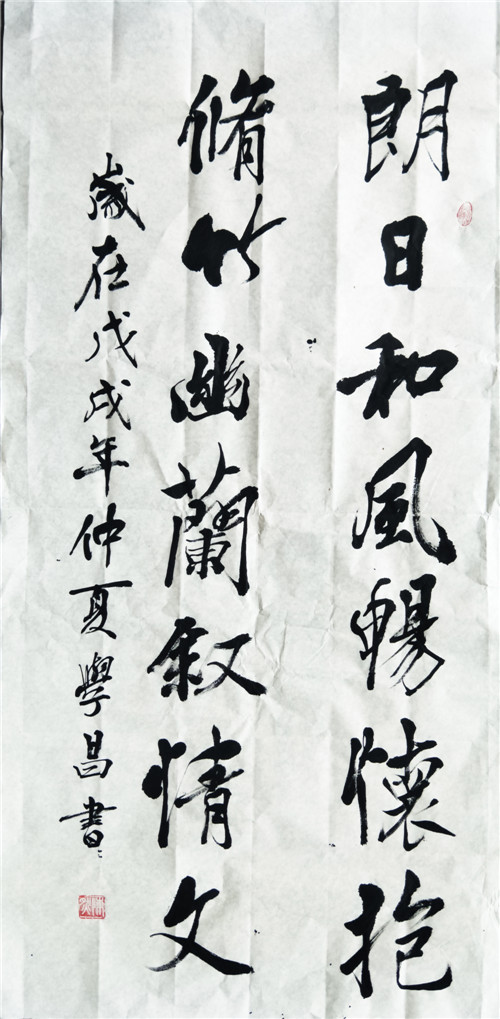 朗日和風暢懷抱
脩竹幽蘭叙情文
歲在戊戌年仲夏學昌書